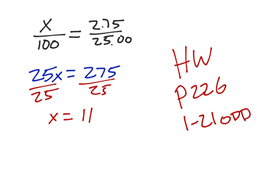 x/100 = 2.75/25.00
25x/25 = 275/25
x = 11
HW
P226
1-21 ODD